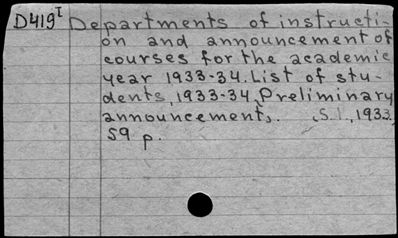 D419ᴵ Departments of instructi-
on and announcement of
courses for the academic
year 1933-34. List of stu-
dents, 1933-34, Preliminary
announcements. (S.l., 1933
59 p.